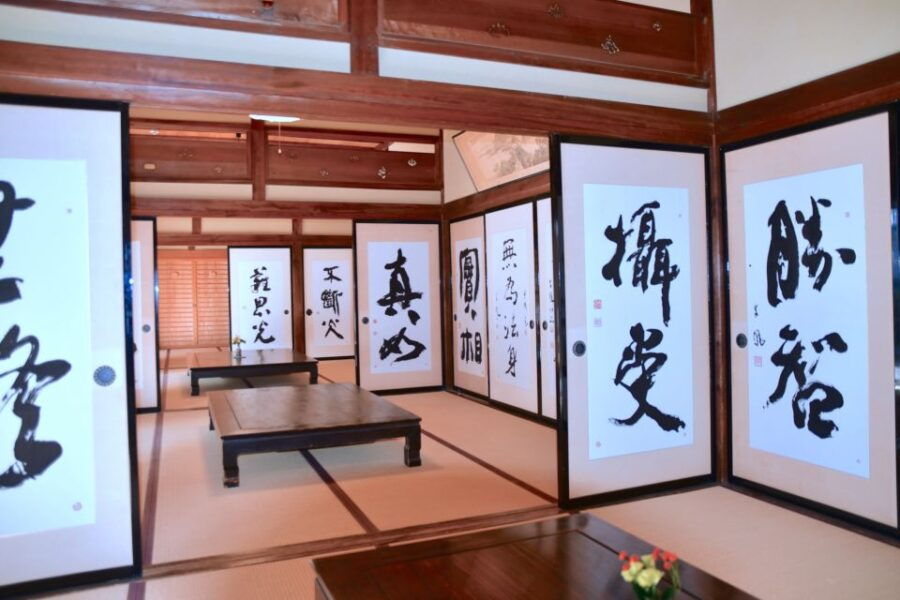 勝智
攝受
無為法身
寶相
真如
不斷光
難思光